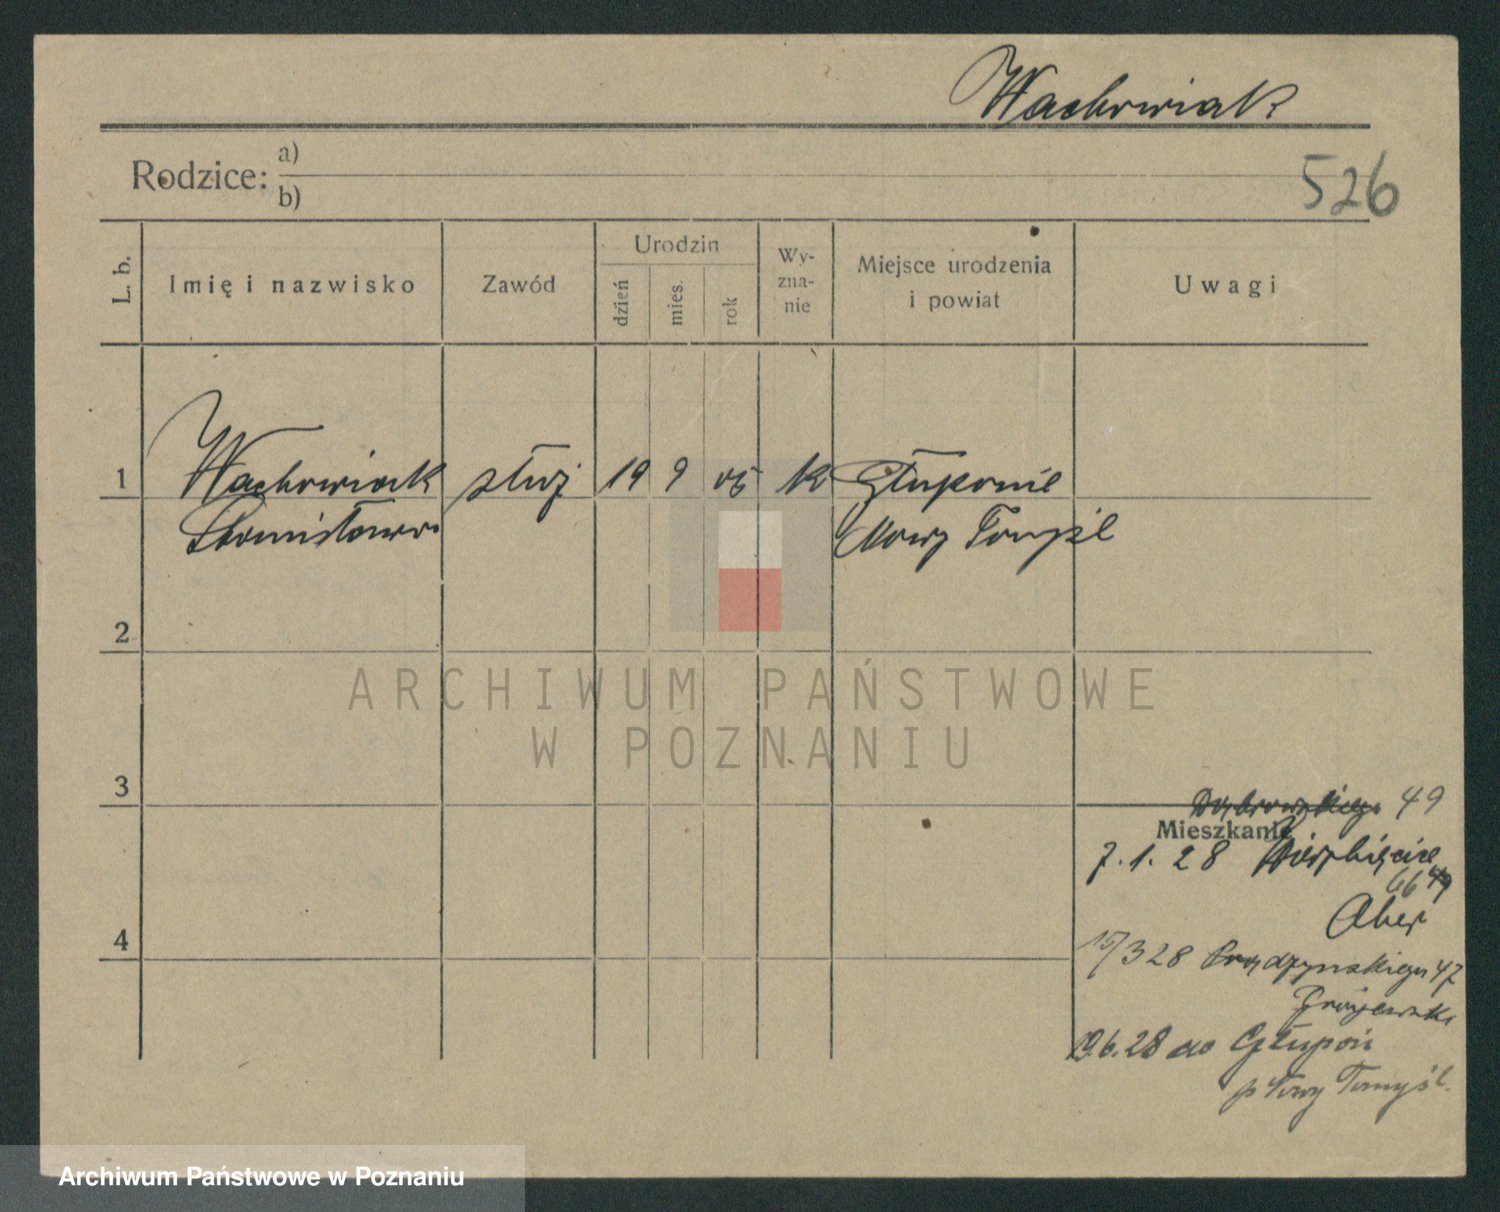 Wachowiak
Rodzice: a)
b)
526
L. b.
Imię i nazwisko
Zawód
Urodzin
dzień
mies.
rok
Wy-
zna-
nie
Miejsce urodzenia
i powiat
Uwagi
1
Wachowiak służ 19 9 05 k Głuponie
Stanisława Nowy Tomyśl
2
ARCHIWUM PAŃSTWOWE
W POZNANIU
3
Dąbrowskiego 49
Mieszkanie
7.1.28 Wierzbięcice
66
4
15/3 28 Prądzyńskiego 47
19.6.28 do Głupoń
p Nowy Tomyśl.
Archiwum Państwowe w Poznaniu